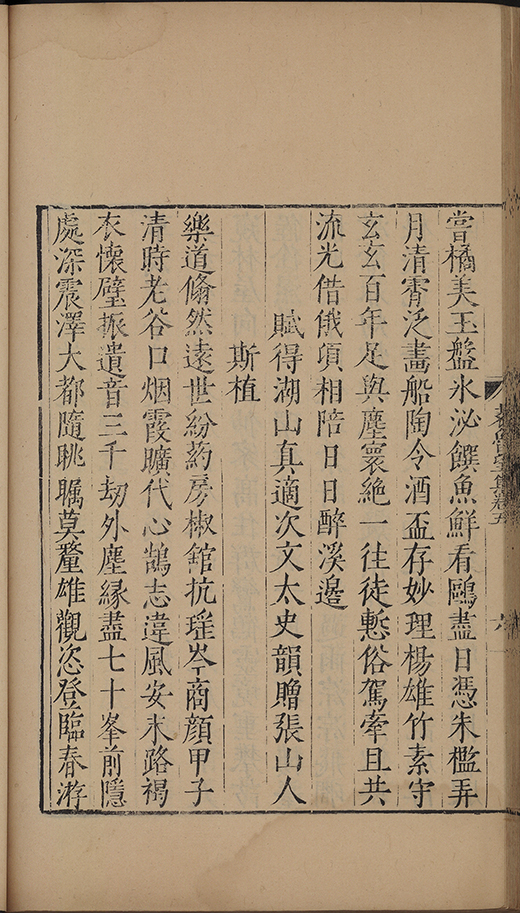 嘗橘美玉盤氷泌饌魚鮮看鷗盡日憑朱檻弄
月清霄泛畵船陶令酒盃存妙理楊雄竹素宇
玄玄百年足與塵寰絶一徃徒慙俗駕牽且共
流光借俄頃相陪日日醉溪邉
賦得湖山真適次文太史韻贈張山人
斯植
樂道翛然遠世紛葯房椒舘抗瑤岑商顔甲子
清時老谷口烟霞曠代心鵠志違風安末路褐
衣懷璧振遺音三千劫外塵縁盡七十峯前隱
處深震澤大都隨眺矚莫釐雄觀恣登臨春游
卷五
六